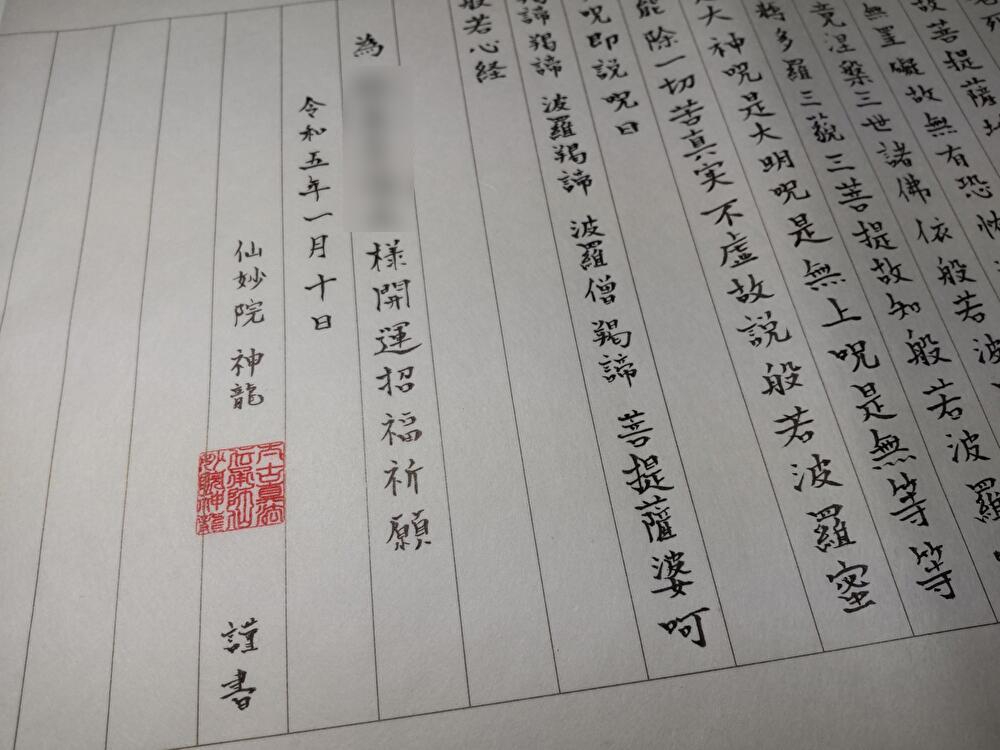 死
故菩提薩埵
無罣礙故無有恐怖
竟涅槃三世諸佛依般若波
耨多羅三藐三菩提故知般若波羅
大神呪是大明呪是無上呪是無等等
能除一切苦真実不虚故説般若波羅蜜
呪即説呪曰
羯諦羯諦 波羅羯諦 波羅僧羯諦 菩提薩婆呵
般若心経
為 様開運招福祈願
令和五年一月十日
仙妙院 神龍 謹書